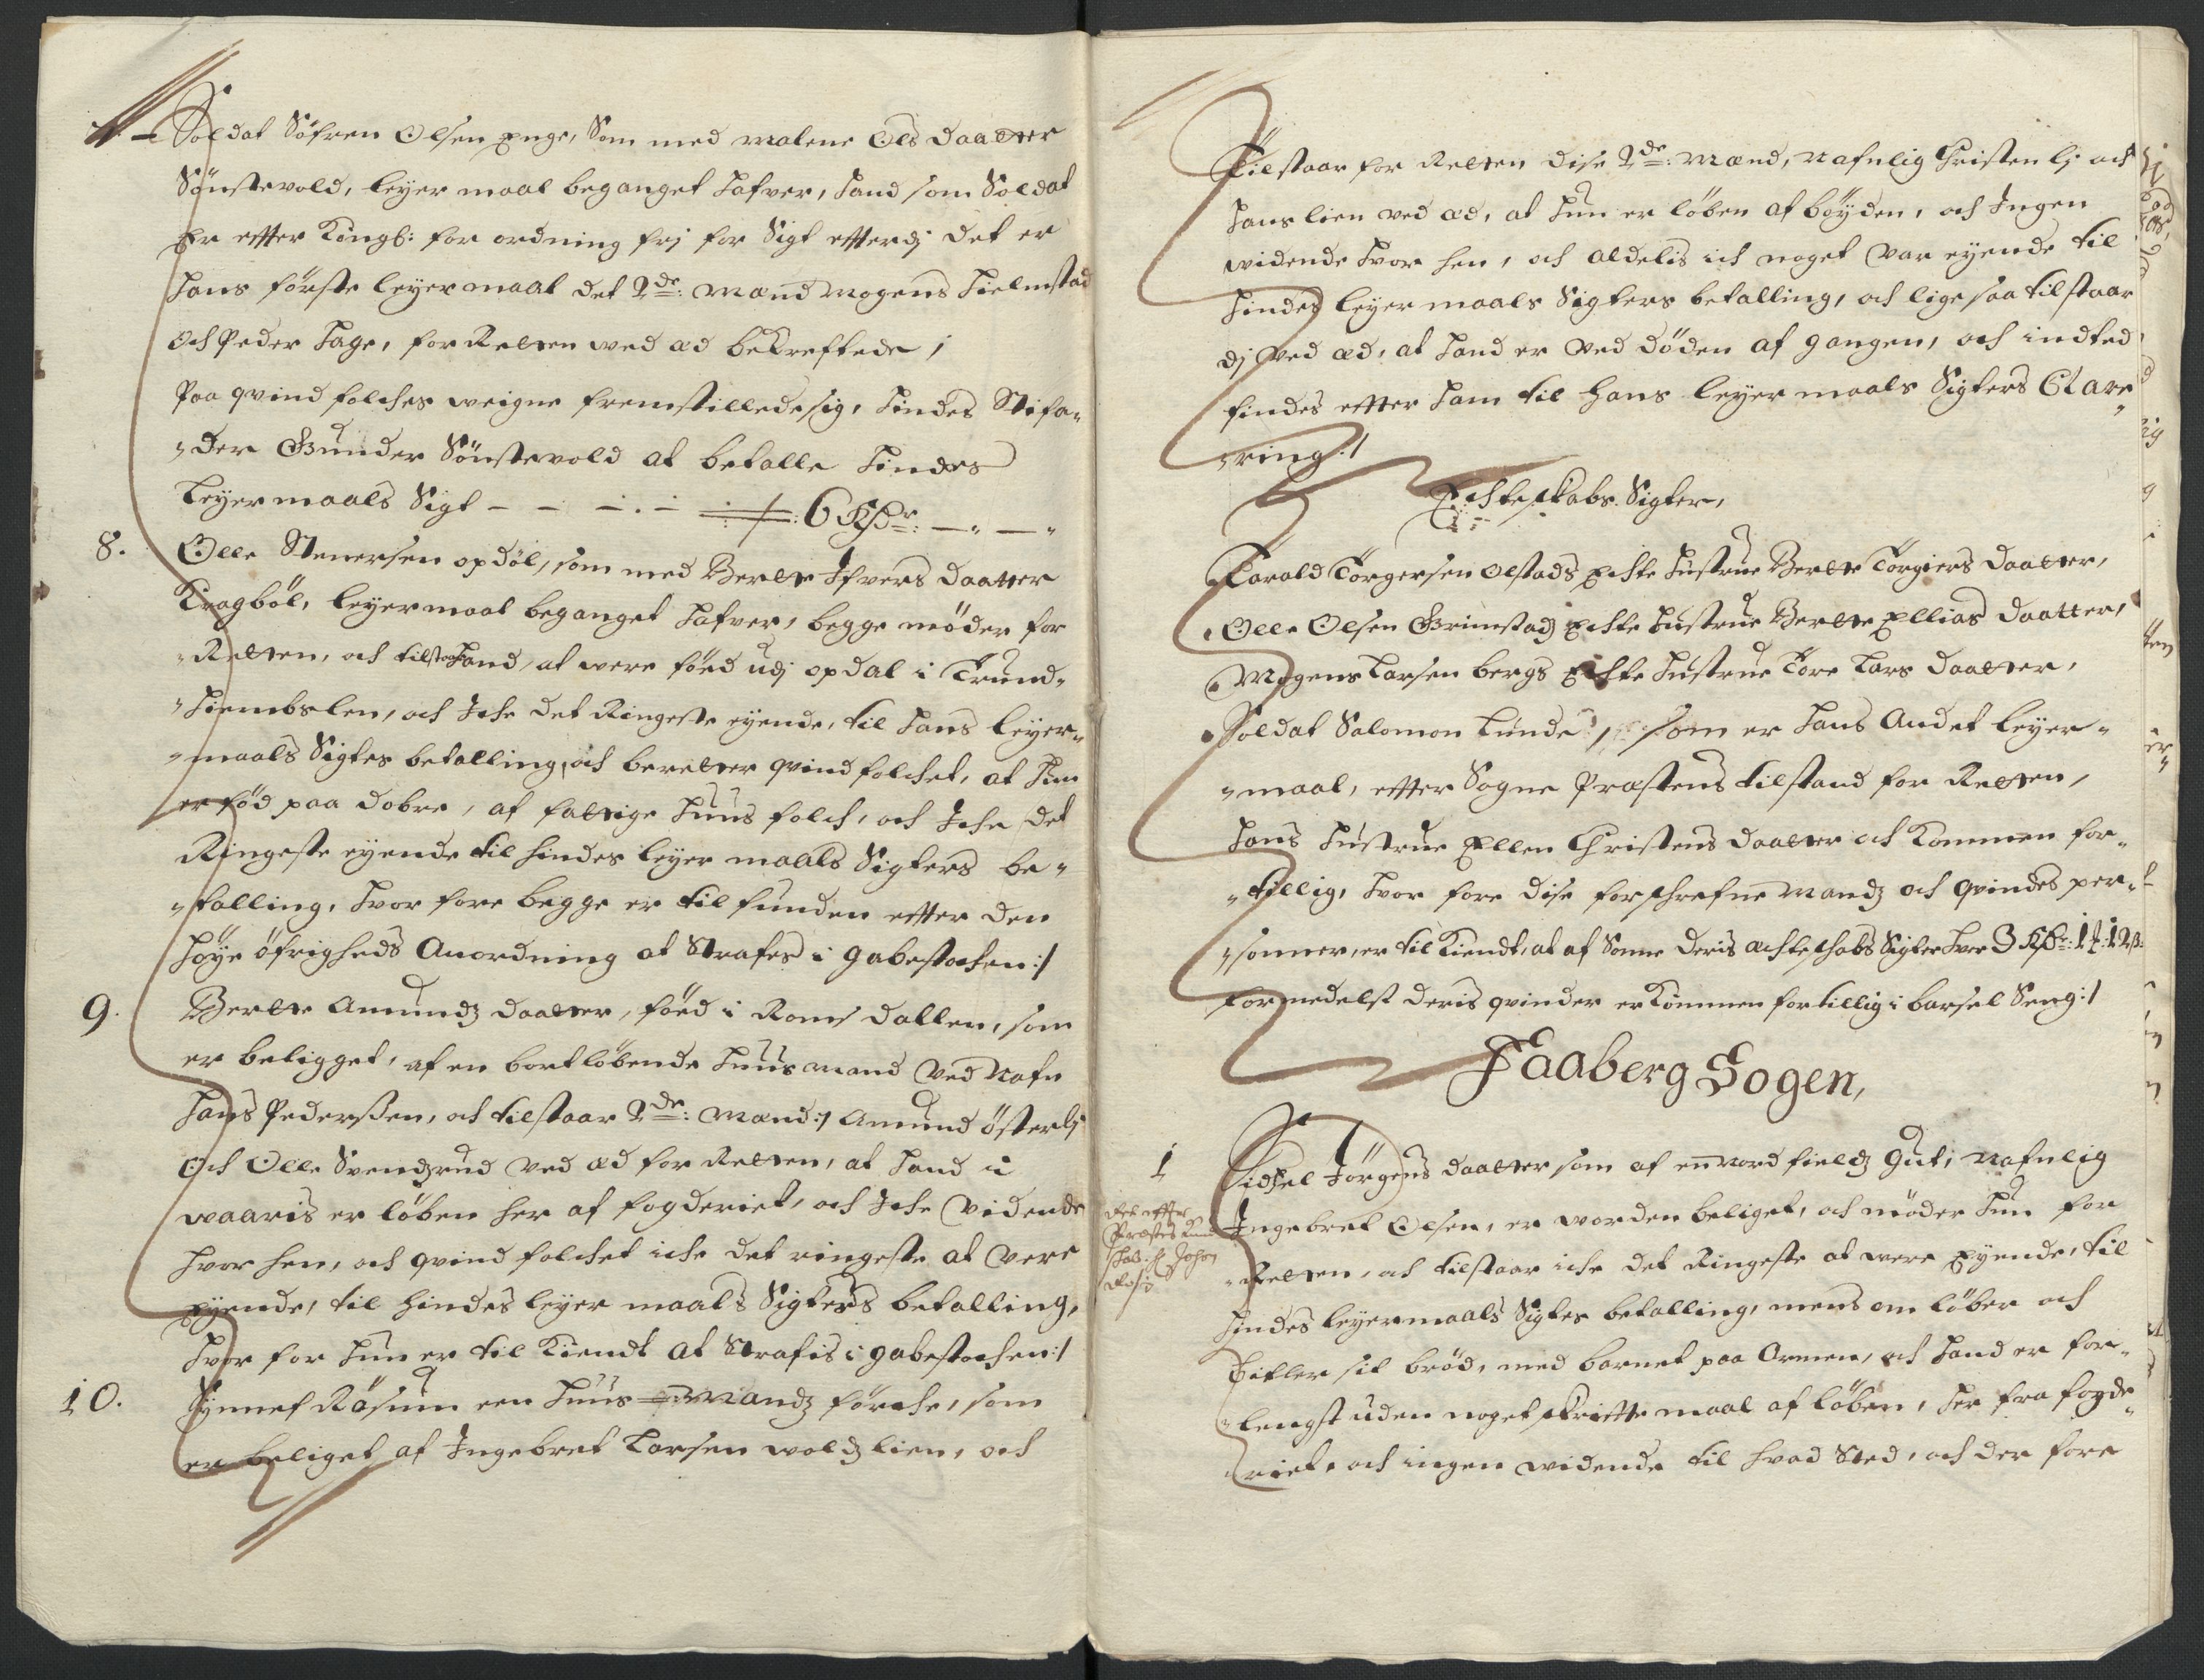 7. Soldat Söfren Olsen Enge, Som med Malene Ols daatter
Sönstevold, leyermaal beganget hafver, hand som Soldat
Er efter Kongl: forordning frj for Sigt efterdj det er
hans första leyermaal det 2de: Mænd Mogens Hielmstad
Och Peder Hage, for Retten med æd bekreftede /
Paa qvindfolches weigne fremstillede sig, hindes Stifa-
-der Gunder Sönstevold at betalle hindes
leyermaals Sigt - - - - 6 Rdr: - " - "
8. Olle Stenersen opdöl, som med Berette Ifvers daatter
Kragböl, leyermaal beganget hafver, begge möder for
Retten, och tilstoed hand, at were föed udj opdal i Trund-
hiembs len, och Iche det Ringeste eyende, til hans leyer-
-maals Sigtes betalling, och beretter qvindfolchet, at hun
er föd paa dobre, af fattige huus folch, och Iche det
Ringeste eyende til hindes leyermaals Sigters be-
-talling, hvor fore begge er tilfunden efter den
höye öfrigheds Anordning at Strafes i gabestochen:/
9. Berette Amundz daatter, föed i Roms dallen, som
er beligget, af en bortlöbende huusmand ved Nafn
hans Pederssen, och tilstaar 2de: Mænd:/ Amund österlj
Och Olle Svendzrud ved æd for Retten, at hand i
waaris er löben her af fogderiet, och Iche vidende
hvor hen, och qvindfolchet iche det ringeste at vere
Eyende, til hindes leyermaals Sigters betalling,
hvor for hun er tilkiendt at Strafis i gabestochen:/
10. Synnef Rösum een huus mandz förche, som
er beliget af Ingebret Larsen woldzlien, och
Tilstaar for Retten dise 2de: Mænd, nafnlig Christen lj och
hans lien ved æd, at hun er löben af böyden, och Ingen
widende hvor hen, och aldelis ich noget var eyende til
hindes leyermaals Sigters betalling, och ligesaa tilstaar
dj ved æd, at hand er ved döden af gangen, och indted
findes efter ham til hans leyermaals Sigters Clare
-ring:/
Echteskabs Sigter,
Harald Törgersen Olstads Echte hustrue Berette Törgiers daatter,
Olle Olsen Grimstad Echte hustrue Berette Ellias daatter,
Mogens Larsen bergs Echte hustrue Töre Lars daatter,
Soldat Salomon Lunde, som er hans Andet leyer-
-maal, efter Sogne Præstens tilstand for Retten,
hans hustrue Ellen Christens daatter och kommen for-
-tillig, hvor fore dise forschrefne mandz och qvindes per-
-sonner, er tilkiendt, at af Sonne deris echteschabs Sigter hver 3 Rdr: 1 ort: 12 s:
formedelst deris qvinder er kommen fortillig i barsel Seng:/
Faaberg Sogen,
1 Sidsel Jörgens daatter som af en nordfieldz gut, nafnlig
Ingebret Olsen, er worden beliget, och möder hun for
Retten, och tilstaar iche det Ringeste at were Eyende, til
hindes leyermaals Sigtes betalling, mens om löber och
betler sit bröd, med barnet paa Armen, och hand er for-
-lengst uden noget skriftemaal af löben, her fra fogde-
-riet, och ingen widende til hvad Sted, och der fore